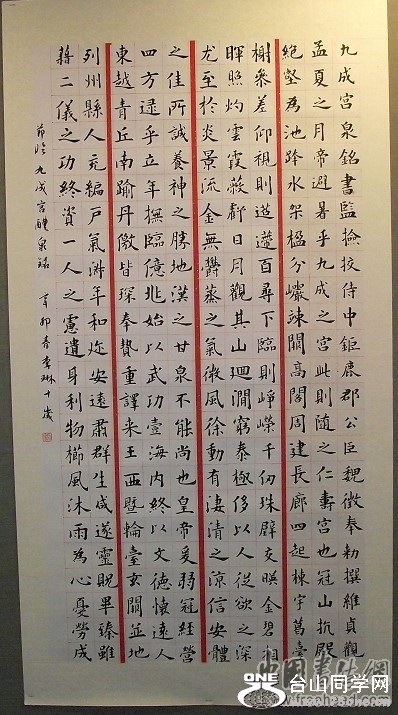 九成宮泉銘書監撿挍侍中鉅鹿郡公臣魏徵奉勅撰維貞觀
孟夏之月帝避暑乎九成之宮此則隨之仁壽宮也冠山抗殿
絕壑為池跨水架楹分巖竦闕高閣周建長廊四起棟宇葛臺
榭參差仰視則迢遰百尋下臨則崢嶸千仞珠壁交暎金碧相
暉照灼雲霞蔽虧日月觀其山迴澗窮泰極侈以人從欲之深
尤至於炎景流金無鬱蒸之氣微風徐動有淒清之涼信安體
之佳所誠養神之勝地漢之甘泉不能尚也皇帝爰弱冠經營
四方逯乎立年撫臨億兆始以武功壹海內終以文德懷遠人
東越青丘南踰丹徼皆琛奉贄重譯来王西暨輪臺玄闕並地
列州縣人充編戶氣淋年和迩安遠肅群生咸遂靈貺畢臻雖
藉二儀之功終資一人之慮遺身利物櫛風沐雨為心憂勞成
節临九成宮醴泉銘 辛卯春李琳十歲
中国书法网
ONE
台山同学网